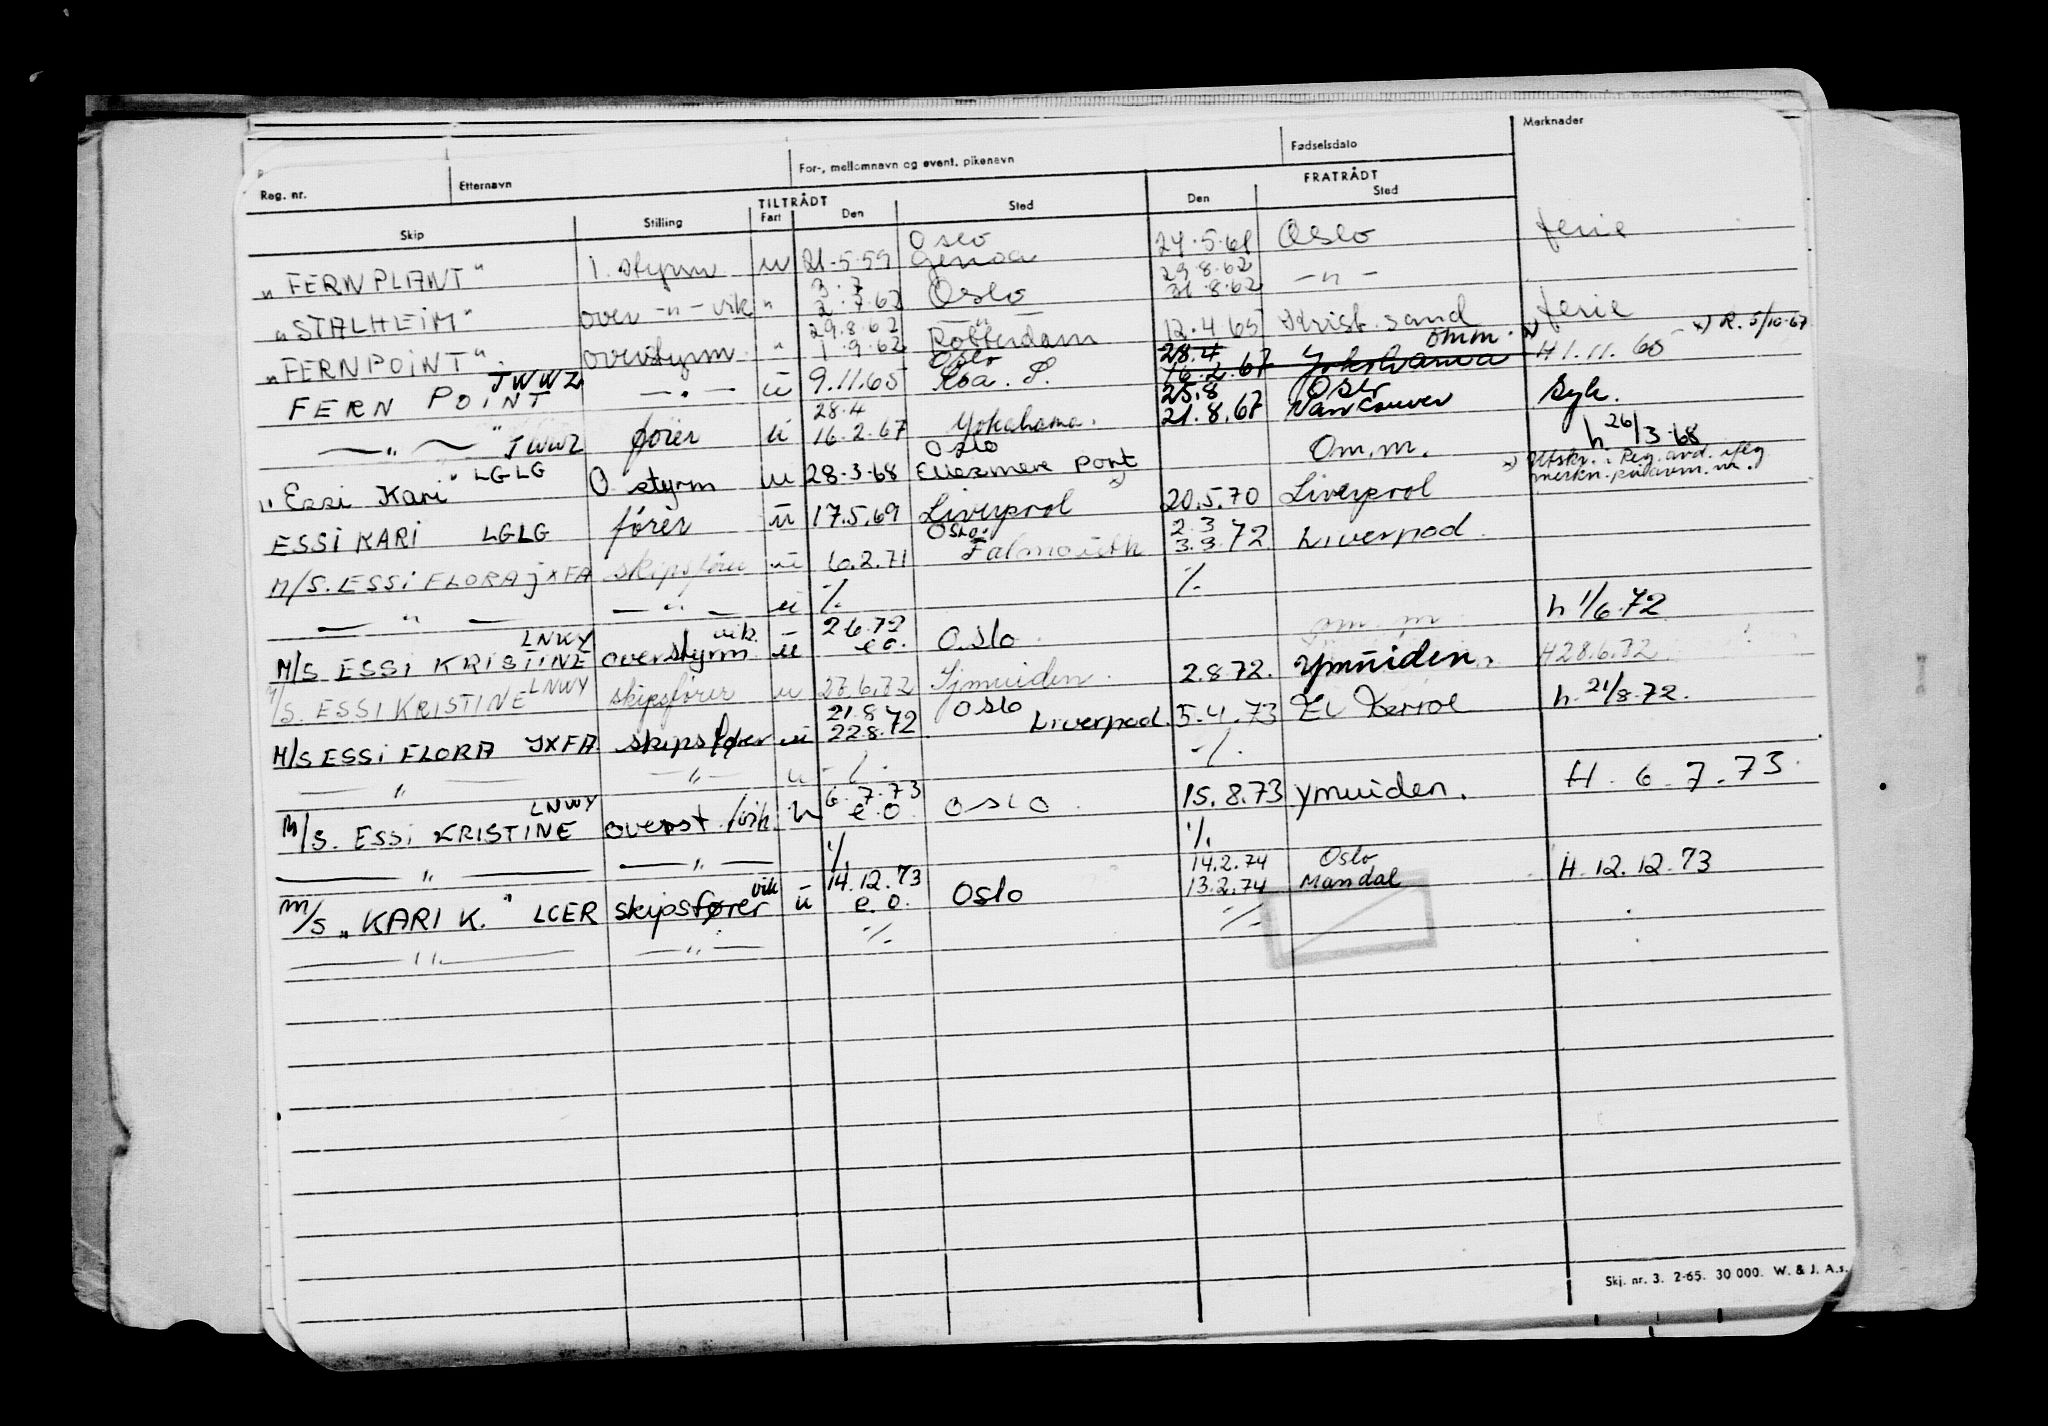 Reg. nr. Etternavn For-, mellomnavn og event. pikenavn Fødselsdato Merknader
TILTRÅDT FRATRÅDT
Skip Stilling Fart Den Sted Den Sted
"FERNPLANT" 1. styrm u 21.5.59 Oslo Genoa 24.5.61 Oslo ferie
"STALHEIM" over -"- vik " 3.7 2.7.62 Oslo 29.8.62 31.8.62 -"-
"FERNPOINT" overstyrm " 29.8.62 1.9.62 -"- Rotterdam 12.4.65 Krist.sand ferie
FERN POINT JWWZ -"- u 9.11.65 Oslo 28.4 16.2.67 Yokohama omm. x) H 1.11.65 x) R. 5/10-67
-"- JWWZ fører u 28.4 16.2.67 Yokohama. 25.8 21.8.67 Oslo Vancouver Syk.
"Essi Kari" LGLG O styrm u 28-3-68 Oslo Ellesmere Port Om.m. h 26/3-68
ESSI KARI LGLG fører u 17.5.69 Liverpool 20.5.70 Liverpool
M/S. ESSI FLORA JXFA skipsfører u 6.2.71 Oslo. Falmouth 2.3 3.3.72 Liverpool.
— " — — " — u ./. ./.
M/S ESSI KRISTIINE LNWY overstyrm vik. u 2.6.72 e.o. Oslo. om. m h 1/6.72
M/S. ESSI KRISTINE LNWY skipsfører u 28.6.72 Ijmuiden. 2.8.72. Ymuiden. H 28.6.72
M/S ESSI FLORA JXFA skipsfører u 21.8 22.8.72 Oslo Liverpool. 5.4.73 El Ferrol h. 21/8-72.
— " — — " — u -/. -/.
M/S. ESSI KRISTINE LNWY overst. /vik. u 6.7.73 e.o. OSLO. 15.8.73 Ymuiden. H. 6.7.73.
— " — — " — ./. ./.
M/S "KARI K." LCER skipsfører vik u 14.12.73 e.o. Oslo 14.2.74 13.2.74 Oslo Mandal H. 12.12.73
— " — — " — ./. ./.
Skj. nr. 3. 2-65. 30 000. W. & J. A.s.